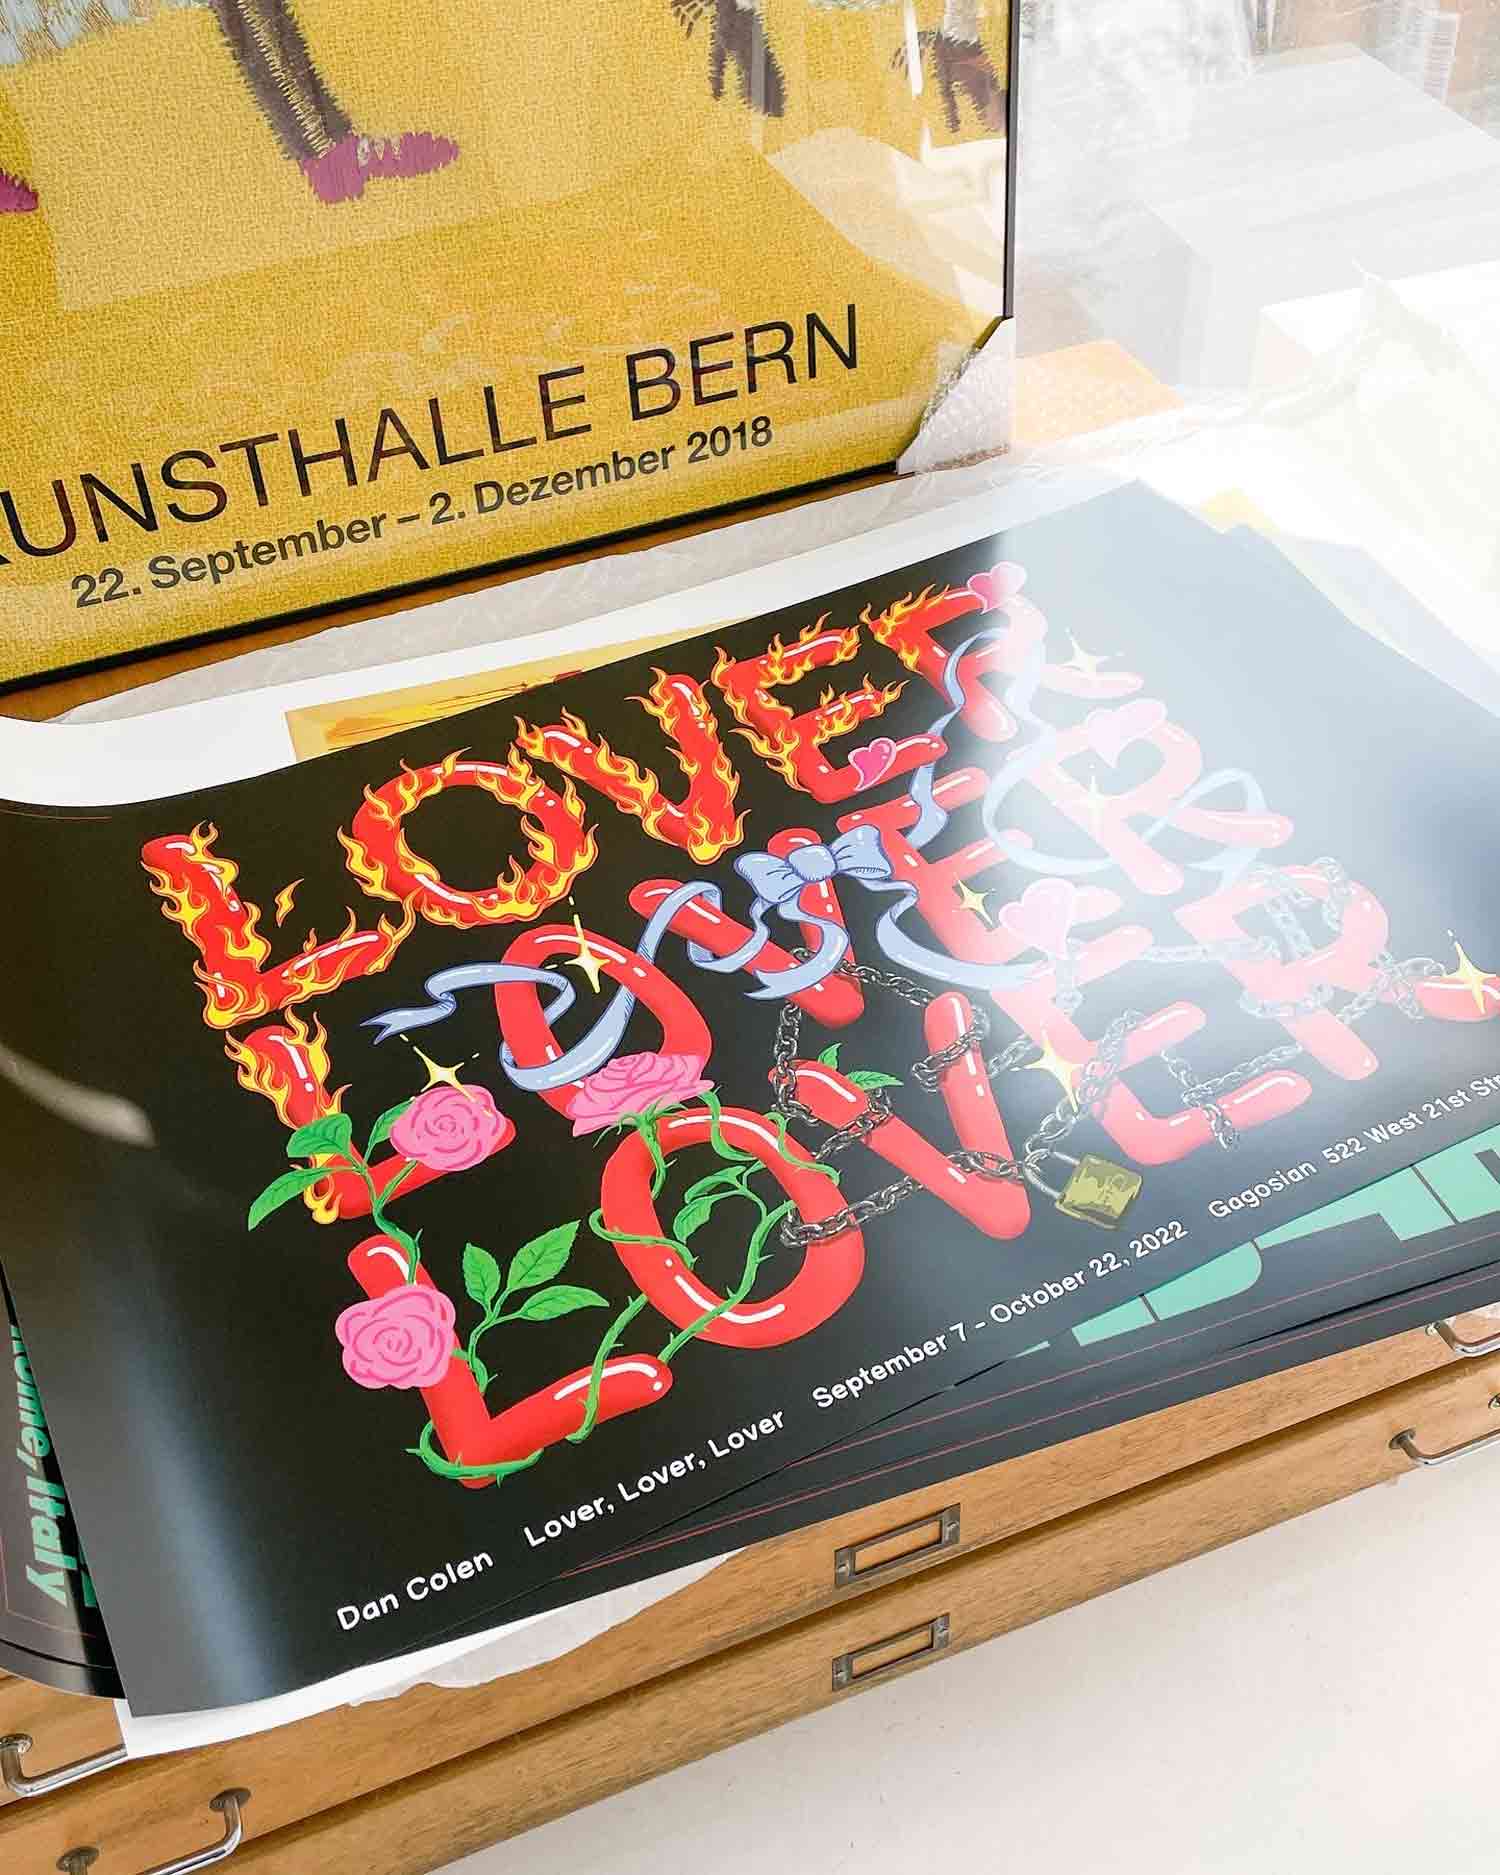 UNSTHALLE BERN
22. September – 2. Dezember 2018
LOVER
LOVER
LOVER
Dan Colen Lover, Lover, Lover September 7 - October 22, 2022 Gagosian 522 West 21st
Italy